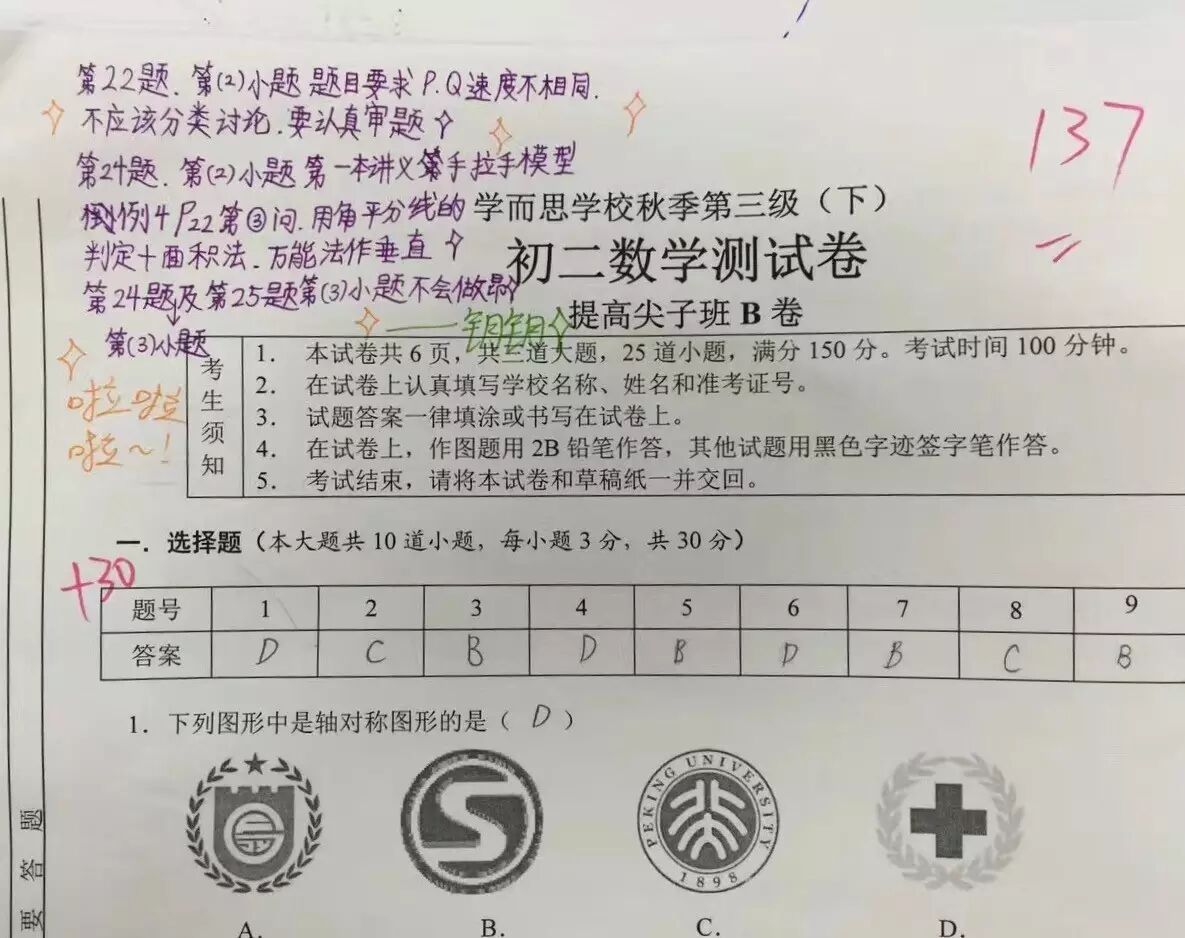 第22题. 第(2)小题 题目要求 P.Q速度不相同.
不应该分类讨论.要认真审题
第24题. 第(2)小题 第一本讲义 手拉手模型
例4 P22 第③问. 用角平分线的
判定+面积法. 万能法作垂直
第24题及第25题第(3)小题不会做昂
第(3)小题
——钥钥
啦啦
啦~!
137
学而思学校秋季第三级（下）
初二数学测试卷
提高尖子班 B 卷
考生须知
1. 本试卷共 6 页，共三道大题，25 道小题，满分 150 分。考试时间 100 分钟。
2. 在试卷上认真填写学校名称、姓名和准考证号。
3. 试题答案一律填涂或书写在试卷上。
4. 在试卷上，作图题用 2B 铅笔作答，其他试题用黑色字迹签字笔作答。
5. 考试结束，请将本试卷和草稿纸一并交回。
一．选择题（本大题共 10 道小题，每小题 3 分，共 30 分）
+30
题号 1 2 3 4 5 6 7 8 9
答案 D C B D B D B C B
1．下列图形中是轴对称图形的是（ D ）
PEKING UNIVERSITY
1898
A. B. C. D.
要 答 题